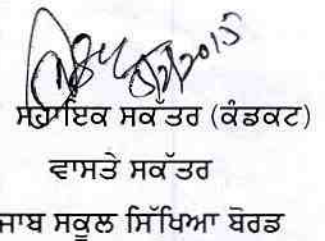 ਸਹਾਇਕ ਸਕੱਤਰ (ਕੰਡਕਟ)
ਵਾਸਤੇ ਸਕੱਤਰ
ਜਾਬ ਸਕੂਲ ਸਿੱਖਿਆ ਬੋਰਡ